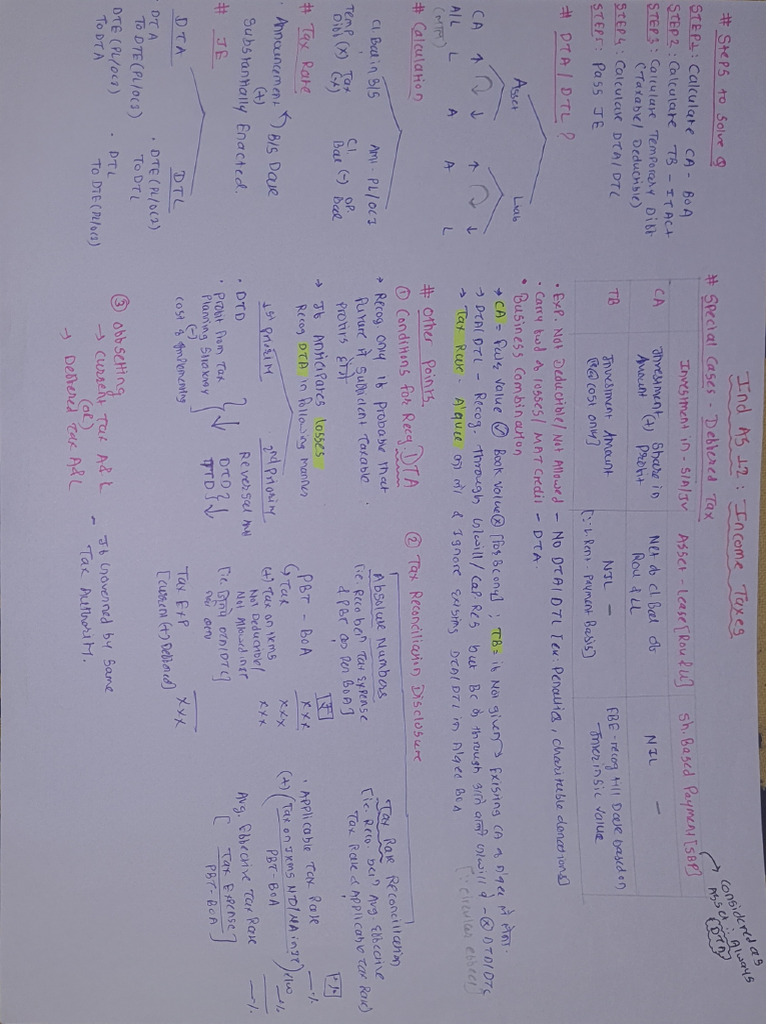 Ind AS 12: Income Taxes
# Steps to Solve Q
STEP1: Calculate CA - BOA
STEP2: Calculate TB - ITAct
STEP3: Calculate Temporary Diff
(Taxable/Deductible)
STEP4: Calculate DTA/DTL
STEP5: Pass JE
# DTA/DTL?
Asset
Liab
CA ↑ ↓ ↑ ↓
A/L L A A L
# Calculation
Cl Bal in B/S
Temp (x) Tax
Diff (x)
Amt - PL/OCI
Cl (-) OP
Bal Bal
# Tax Rate
• Announcement B/S Date
(+)
Substantially Enacted.
# JE
DTA
• DTA
To DTE(PL/OCI)
• DTE (PL/OCI)
To DTA
DTL
• DTE(PL/OCI)
To DTL
• DTL
To DTE(PL/OCI)
# Special Cases - Deferred Tax
Investment in - S/A/JV
Asset - Lease [ROU & LL]
Sh. Based Payment [SBP]
considered as
Asset ∴ Always
(DTA)
CA
Investment (+) Share in
Amount Profit
Net of Cl Bal of
ROU & LL
NIL -
TB
Investment Amount
[@ cost only]
NIL -
[∵ Rent - Payment Basis]
FBE - recog till Date based on
Intrinsic Value
• Exp. Not Deductible/Not Allowed - No DTA/DTL [ex: Penalties, charitable donations]
• Carry fwd of losses/MAT Credit - DTA.
• Business Combination
→ CA = Fair Value ✓ Book Value ✗ [for BC only]; TB = if Not given → Existing CA of A'qee
→ DTA/DTL - Recog. Through G/will/Cap Res
→ Tax Rate - A'quee & Ignore Existing DTA/DTL in A'qee BOA
# Other Points
① Conditions for Recog DTA
• Recog only if Probable that
Future + sufficient Taxable
Profits
→ If Anticipates losses
Recog DTA in following manner
1st Priority
• DTD
• Profit from Tax
Planning Strategy
(-)
cost of Implementing
2nd Priority
Reversal
② Tax Reconciliation Disclosure
Absolute Numbers
[i.e. Reco betn Tax expense
& PBT as per BOA]
[₹]
PBT - BOA xxx
Tax xxx
(+) Tax on Items xxx
Not Deductible/
Not Allowed
Tax Exp xxx
[Current (+) Deferred]
Tax Rate Reconciliation
[i.e. Reco. betn Avg Effective
Tax Rate & Applicable Tax Rate]
[%]
• Applicable Tax Rate —%
(+) (Tax on Items ND/NA in IT) —%
PBT - BOA
Avg. Effective Tax Rate —%
[Tax Expense]
PBT - BOA
③ Offsetting
→ Current Tax A&L
(or)
→ Deferred Tax A&L
- If Governed by same
Tax Authority.